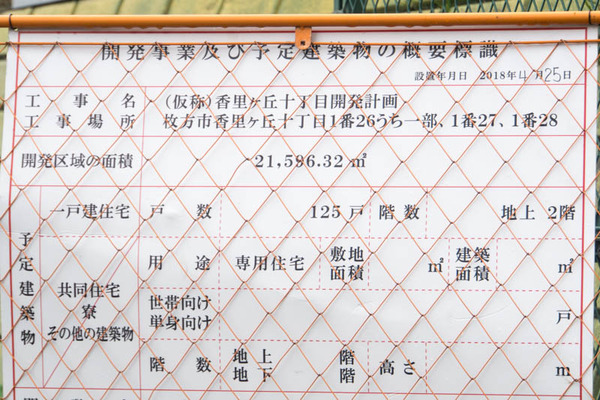 開発事業及び予定建築物の概要標識
設置年月日 2018年4月25日
工事名 (仮称)香里ヶ丘十丁目開発計画
工事場所 枚方市香里ヶ丘十丁目1番26うち一部、1番27、1番28
開発区域の面積 21,596.32 ㎡
予定建築物
一戸建住宅 戸数 125戸 階数 地上 2階
共同住宅
寮
その他の建築物
用途 専用住宅 敷地面積 ㎡ 建築面積 ㎡
世帯向け
単身向け 戸
階数 地上 階 高さ m
地下 階